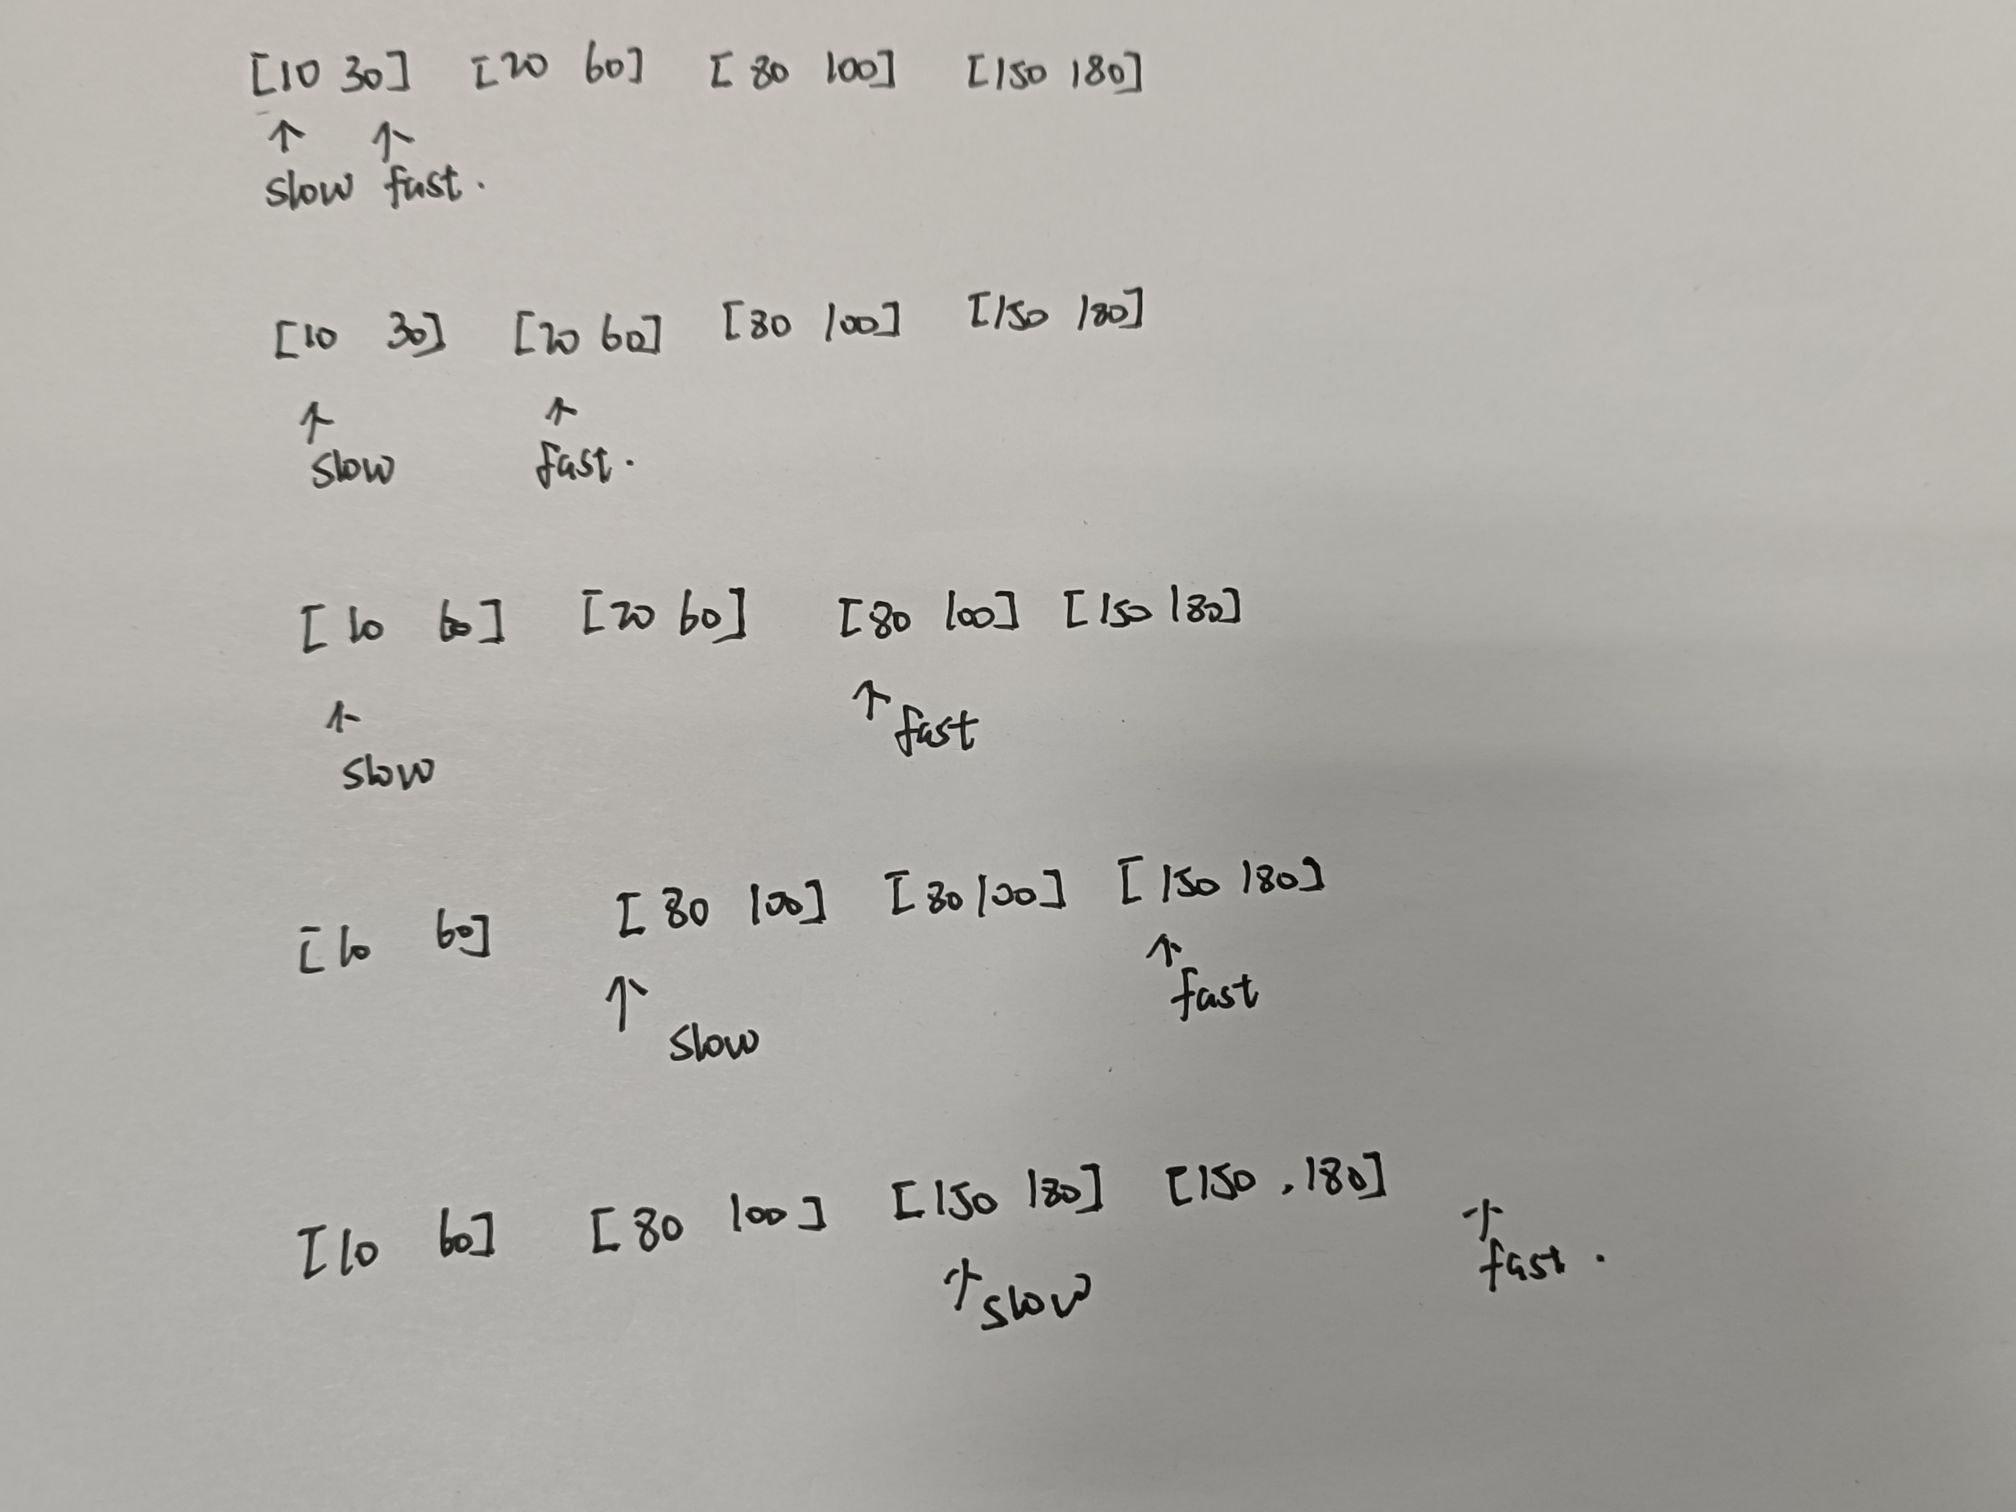 [10 30] [20 60] [80 100] [150 180]
↑ ↑
slow fast.
[10 30] [20 60] [80 100] [150 180]
↑ ↑
slow fast.
[10 60] [20 60] [80 100] [150 180]
↑ ↑ fast
slow
[10 60] [80 100] [80 100] [150 180]
↑ ↑
fast
slow
[10 60] [80 100] [150 180] [150, 180]
↑ slow ↑ fast.